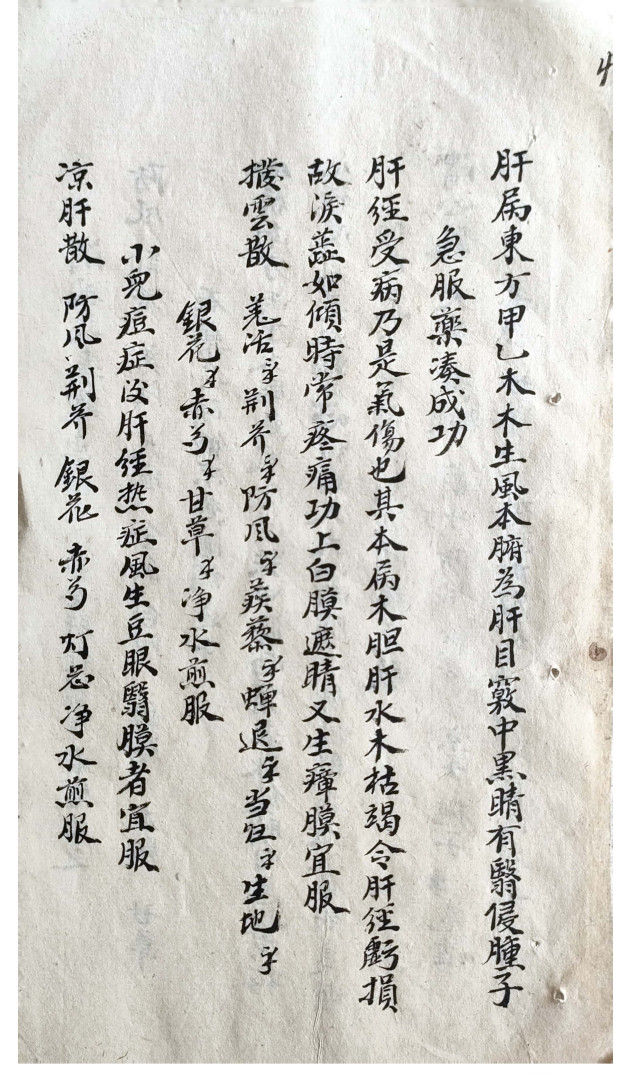 4
肝属東方甲乙木木生風本腑為肝目竅中黒睛有翳侵瞳子
急服藥凑成功
肝経受病乃是氣傷也其本属木胆肝水木枯竭令肝経虧損
故淚蕋如傾時常疼痛功上白膜遮睛又生瘴膜宜服
撥雲散 羗活 荆芥 防风 蒺藜 蟬退 当归 生地
銀花 赤芍 甘草 净水煎服
小兒痘症没肝経热症風生豆眼翳膜者宜服
凉肝散 防风 荆芥 銀花 赤芍 灯芯净水煎服